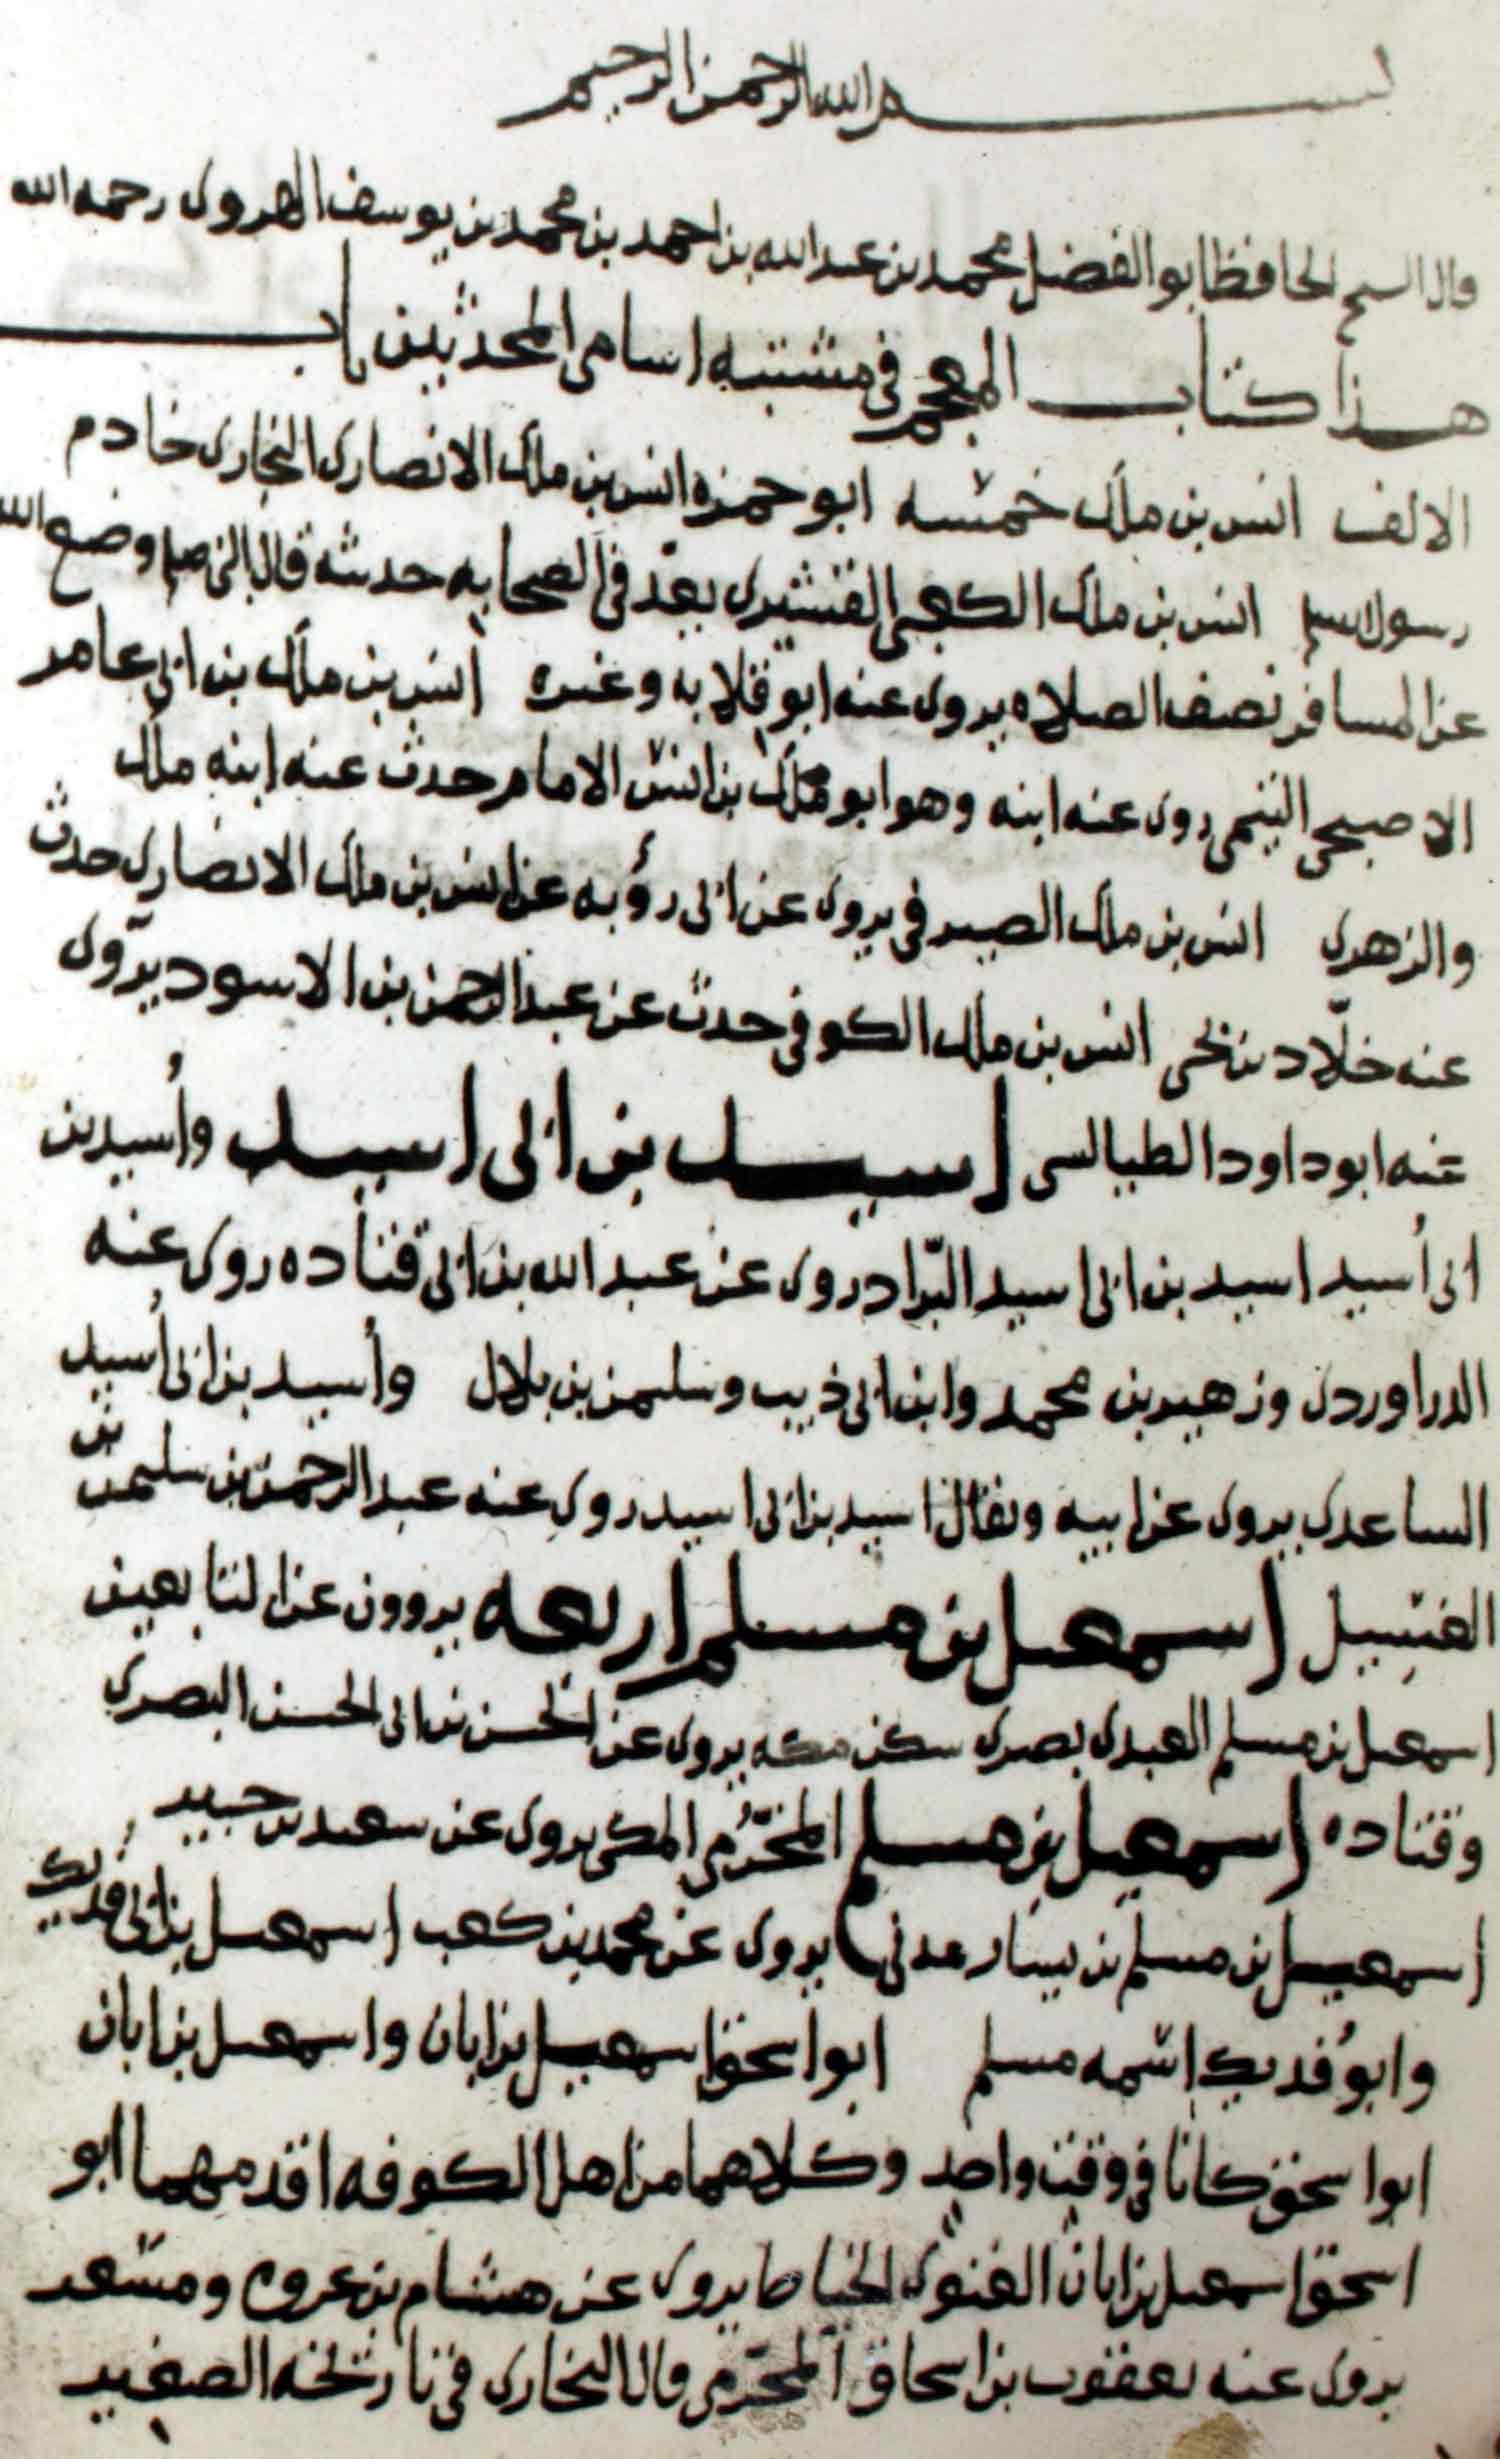 بسم الله الرحمن الرحيم
قال الشيخ الحافظ ابو الفضل محمد بن عبد الله بن احمد بن محمد بن يوسف الهروى رحمه الله
هذا كتاب المعجم فى مشتبه اسامى المحدثين باب
الالف انس بن ملك خمسه ابو حمزه انس بن ملك الانصارى النجارى خادم
رسول الله صلعم انس بن ملك الكعبى القشيرى يعدّ فى الصحابه حدثه قال النبى صلعم وضع الله
عن المسافر نصف الصلاه يروى عنه ابو قلابه وغيره انس بن ملك بن ابى عامر
الاصبحى التيمى روى عنه ابنه وهو ابو ملك بن انس الامام حدث عنه ابنه ملك
والزهرى انس بن ملك الصيرفى يروى عن ابى رؤبه عن انس بن ملك الانصارى حدث
عنه خلّاد بن يحيى انس بن ملك الكوفى حدث عن عبد الرحمن بن الاسود يروى
عنه ابو داود الطيالسى اسيد بن ابى اسيد وأُسيد بن
ابى أُسيد اسيد بن ابى اسيد البرّاد روى عن عبد الله بن ابى قتاده روى عنه
الدراوردى وزهير بن محمد وابن ابى ذيب وسليمن بن بلال وأسيد بن ابى أُسيد
الساعدى يروى عن ابيه ويقال اسيد بن ابى اسيد روى عنه عبد الرحمن بن سليمن بن
الغسيل اسمعيل بن مسلم اربعه يروون عن التابعين
اسمعيل بن مسلم العبدى بصرى سكن مكه يروى عن الحسن بن ابى الحسن البصرى
وقتاده اسمعيل بن مسلم المخرّمى المكى يروى عن سعيد بن جبير
اسمعيل بن مسلم بن يسار مدنى يروى عن محمد بن كعب اسمعيل بن ابى فديك
وابو فديك اسمه مسلم ابو اسحق اسمعيل بن ابان واسمعيل بن ابان
ابو اسحق كانا فى وقت واحد وكلاهما من اهل الكوفه اقدمهما ابو
اسحق اسمعيل بن ابان الغنوى الخياط يروى عن هشام بن عروه ومسعر
يروى عنه يعقوب بن اسحاق المخرمى قال البخارى فى تاريخه الصغير